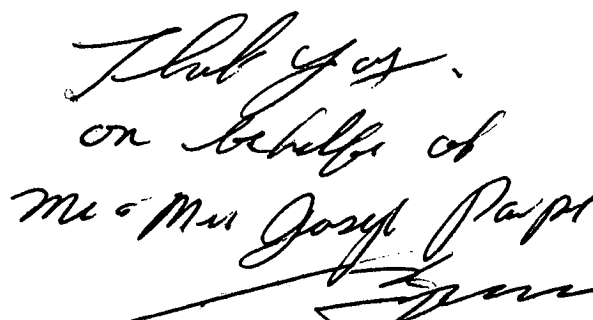 Thank you.
on behalf of
Mr & Mrs Joseph